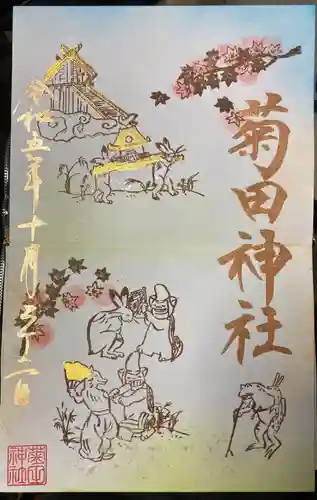 菊田神社
令和五年十月二十二日
菊田
神社